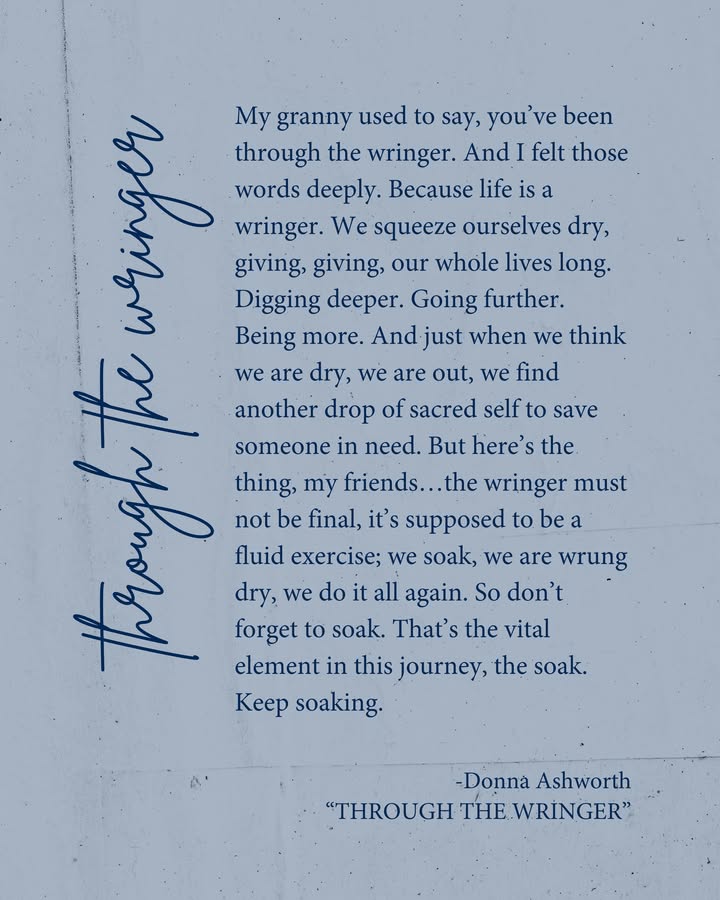 through the wringer
My granny used to say, you’ve been
through the wringer. And I felt those
words deeply. Because life is a
wringer. We squeeze ourselves dry,
giving, giving, our whole lives long.
Digging deeper. Going further.
Being more. And just when we think
we are dry, we are out, we find
another drop of sacred self to save
someone in need. But here’s the
thing, my friends…the wringer must
not be final, it’s supposed to be a
fluid exercise; we soak, we are wrung
dry, we do it all again. So don’t
forget to soak. That’s the vital
element in this journey, the soak.
Keep soaking.
-Donna Ashworth
“THROUGH THE WRINGER”